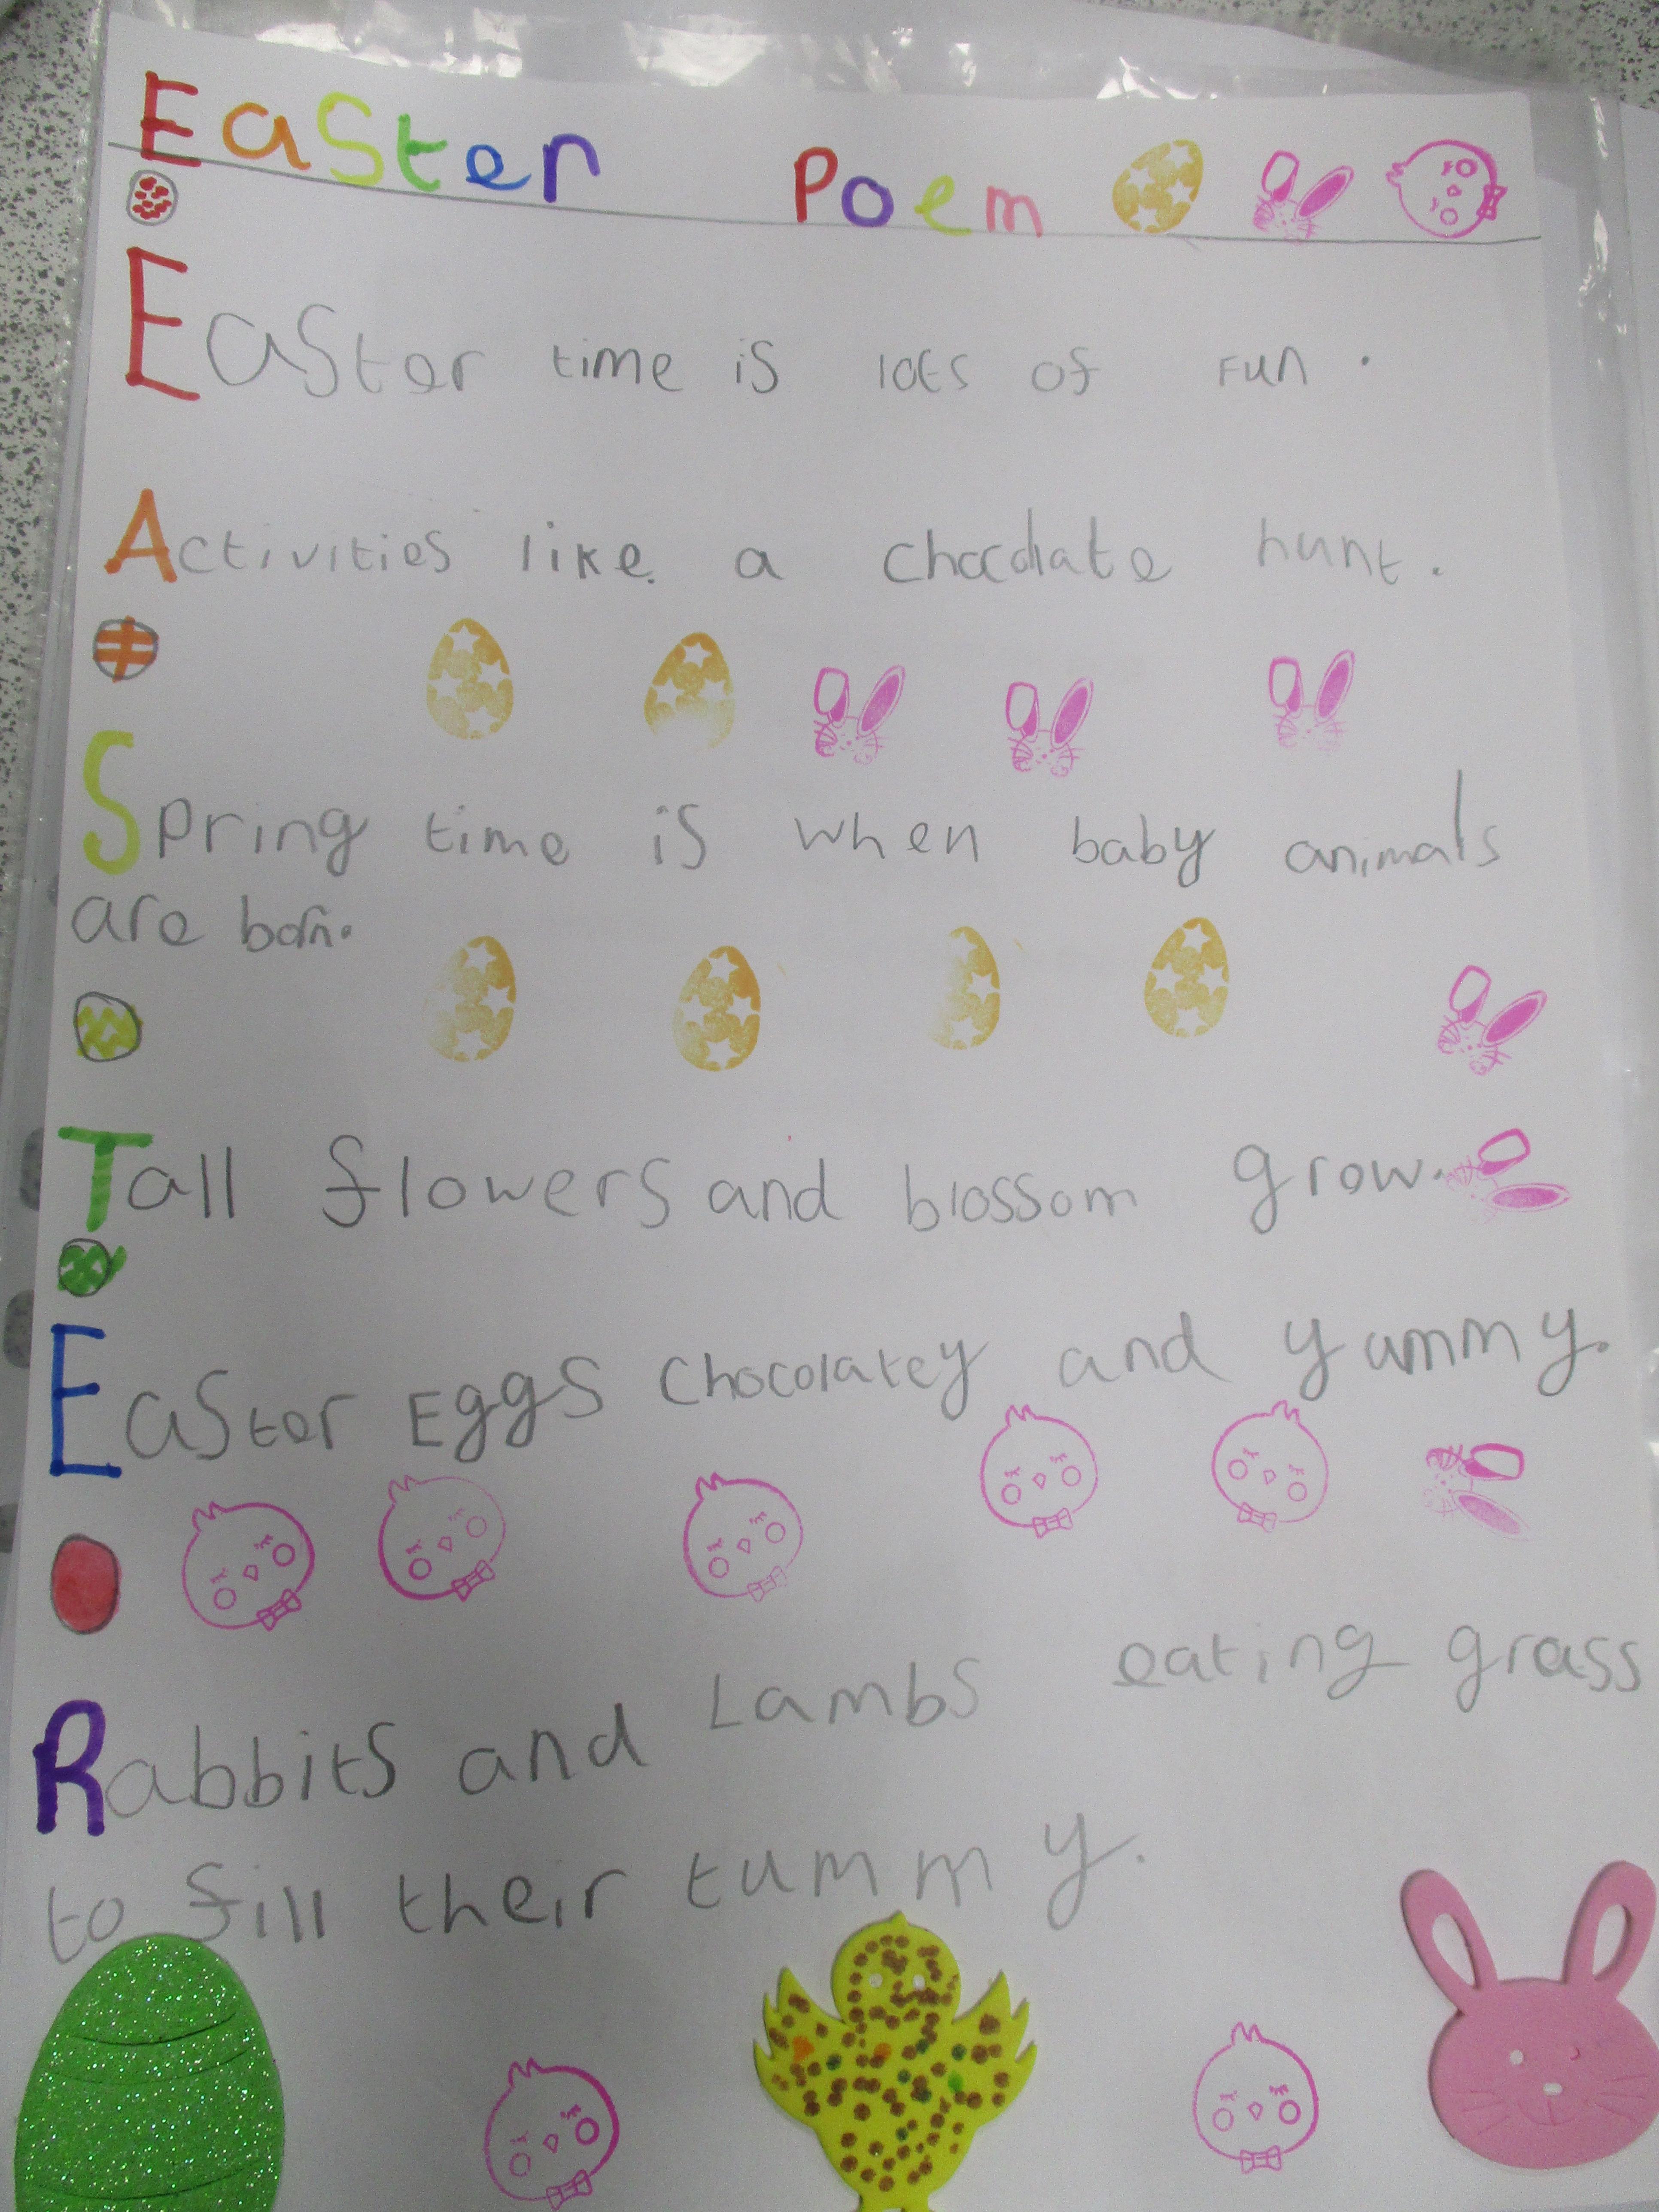 Easter Poem
Easter time is lots of Fun.
Activities like a chocolate hunt.
Spring time is when baby animals
are born.
Tall flowers and blossom grow.
Easter Eggs Chocolatey and yummy.
Rabbits and Lambs eating grass
to fill their tummy.